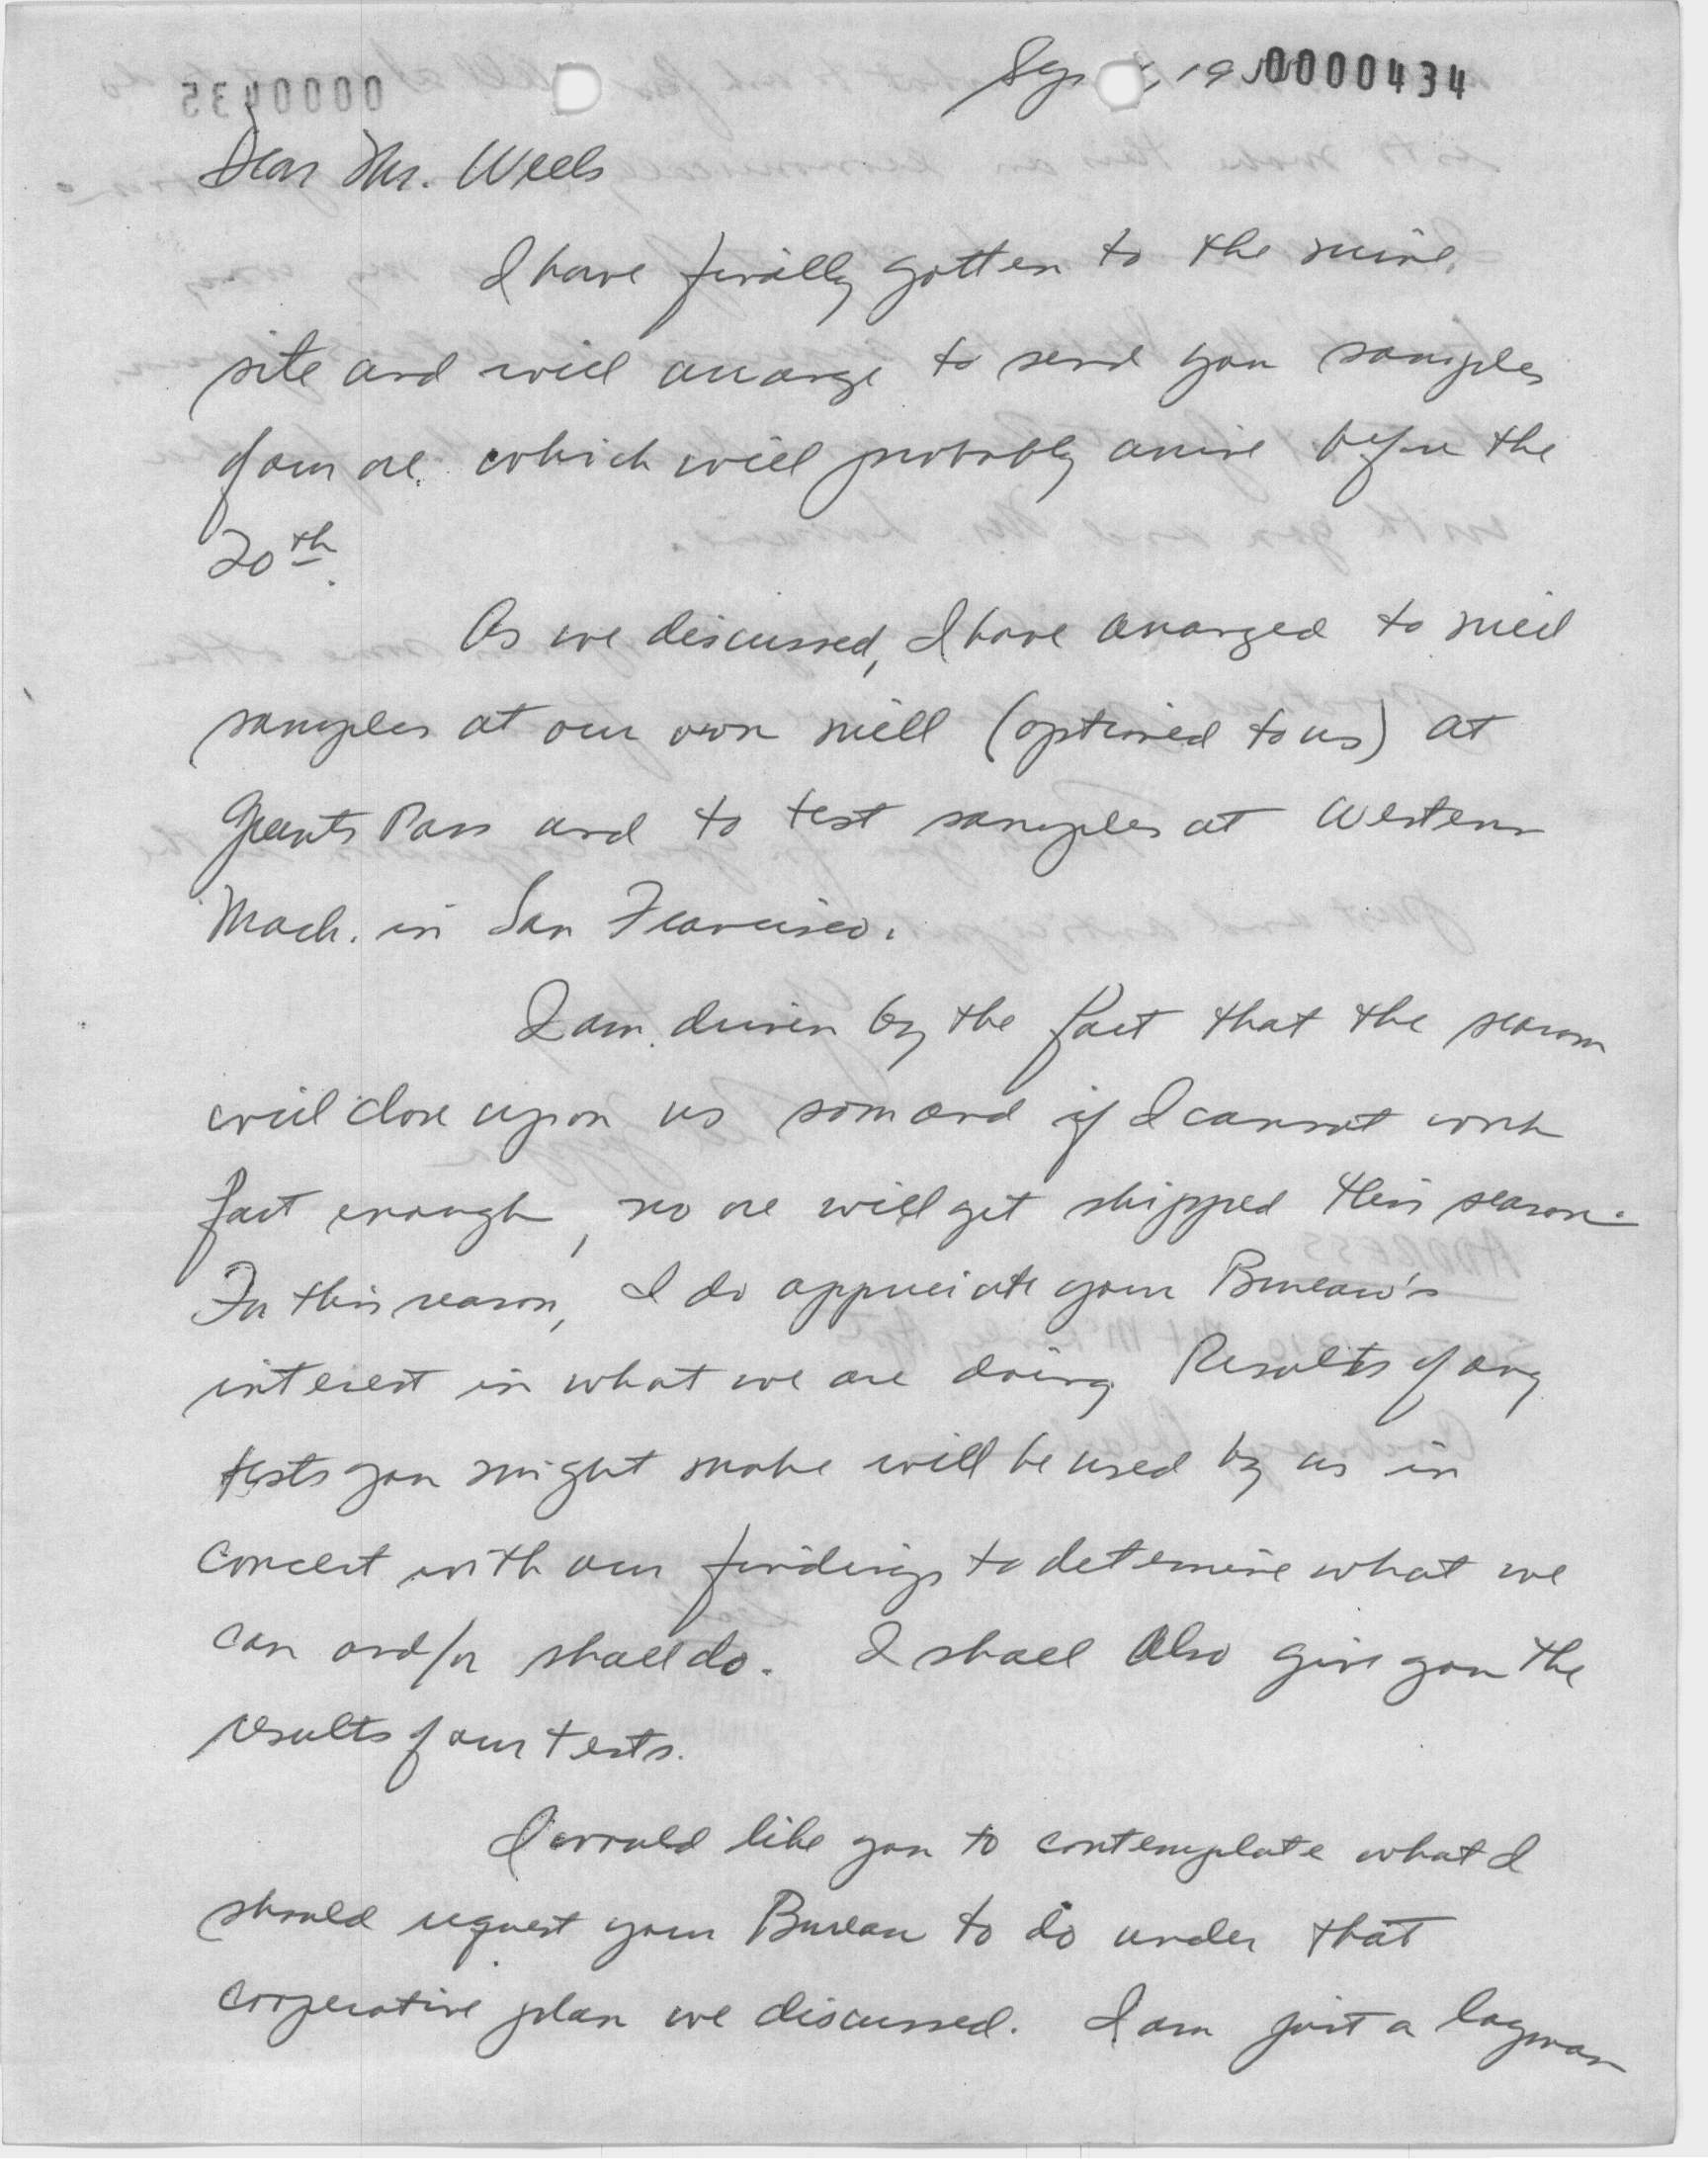 0000434
0000435
Dear Mr. Wells
I have finally gotten to the mine
site and will arrange to send you samples
of our ore which will probably arrive before the
20th.
As we discussed, I have arranged to mill
samples at our own mill (optioned to us) at
Grants Pass and to test samples at Western
Mach. in San Francisco.
I am driven by the fact that the season
will close upon us soon and if I cannot work
fast enough, no ore will get shipped this season.
For this reason, I do appreciate your Bureau's
interest in what we are doing. Results of any
tests you might make will be used by us in
concert with our findings to determine what we
can and/or shall do. I shall also give you the
results of our tests.
I would like you to contemplate what I
should request your Bureau to do under that
cooperative plan we discussed. I am just a layman